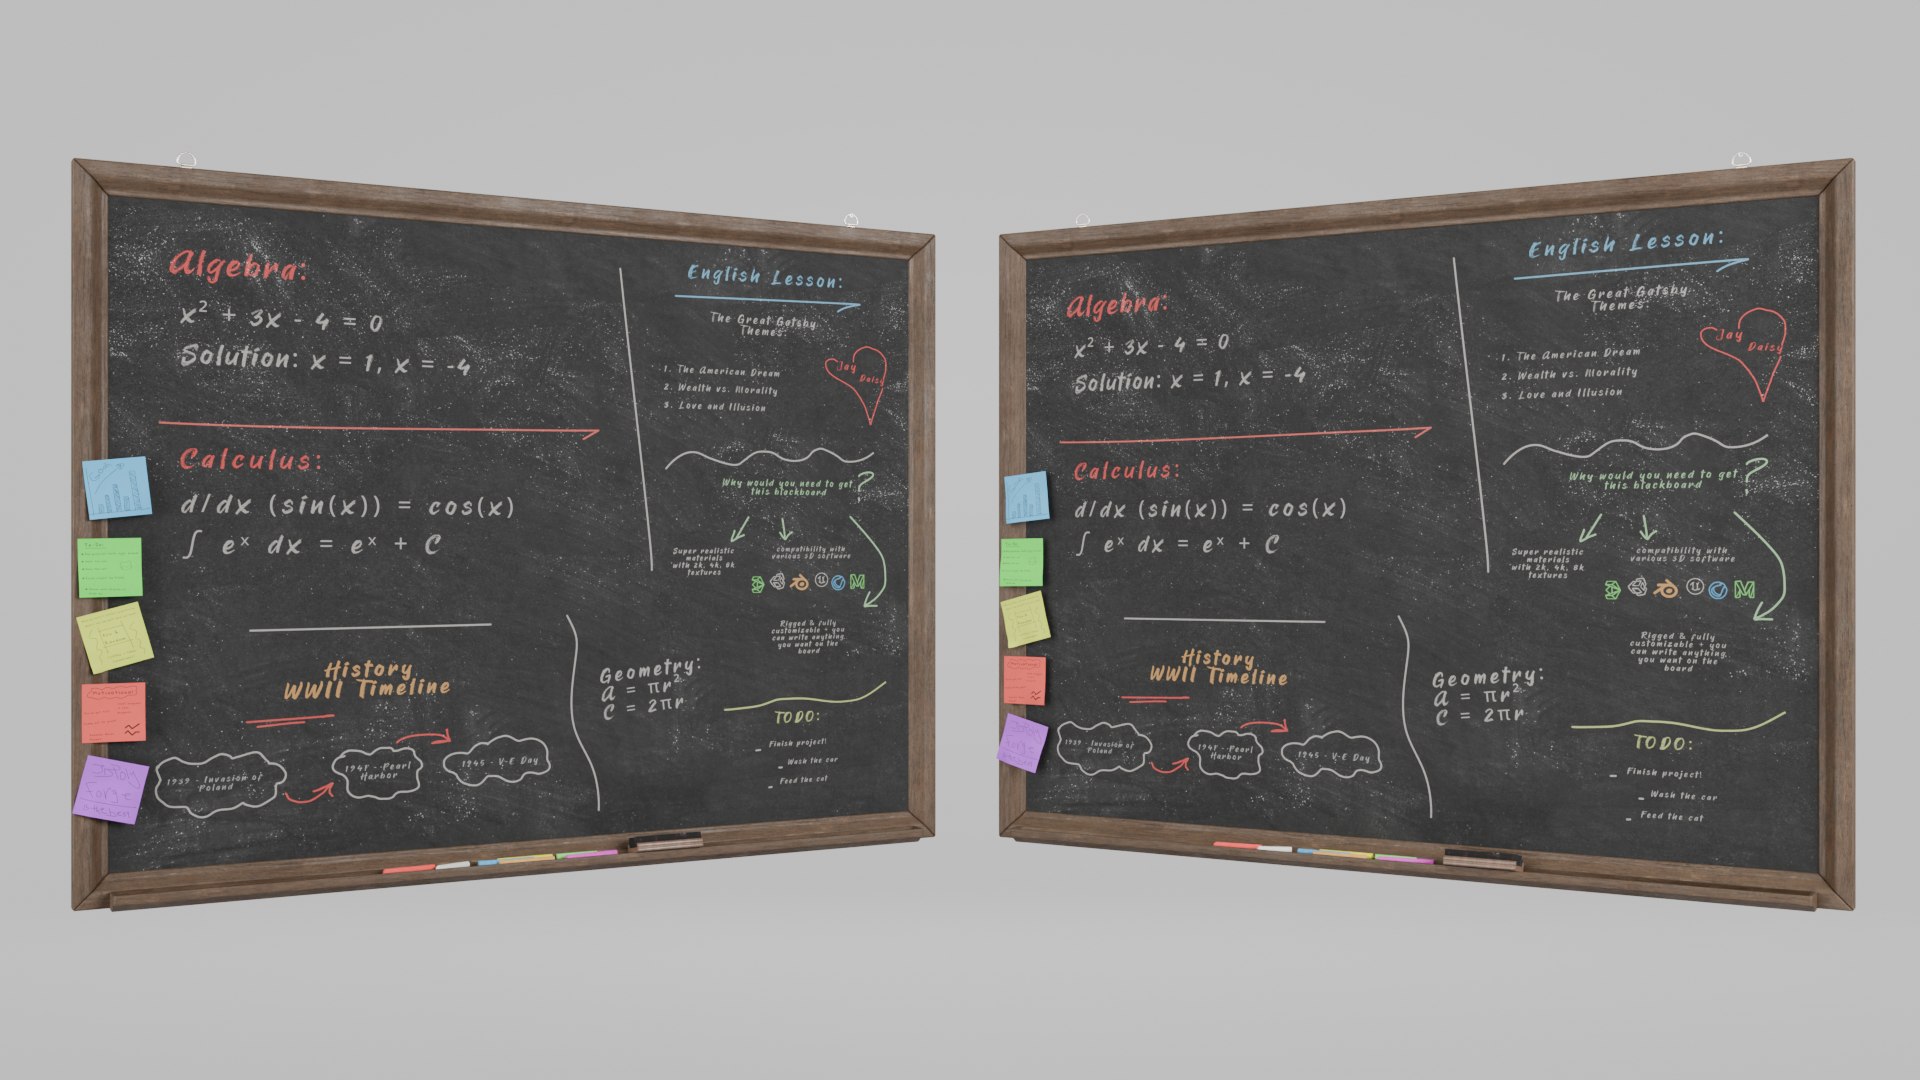 Algebra:
x² + 3x - 4 = 0
Solution: x = 1, x = -4
Calculus:
d/dx (sin(x)) = cos(x)
∫ eˣ dx = eˣ + C
History
WWII Timeline
1939 - Invasion of
Poland
1941 - Pearl
Harbor
1945 - V-E Day
Geometry:
A = πr²
C = 2πr
English Lesson:
The Great Gatsby
Themes:
1. The American Dream
2. Wealth vs. Morality
3. Love and Illusion
Jay
Daisy
Why would you need to get
this blackboard
?
Super realistic
materials
with 2k, 4k, 8k
textures
compatibility with
various 3D software
Rigged & fully
customizable - you
can write anything
you want on the
board
TODO:
_ Finish project!
_ Wash the car
_ Feed the cat
Motivational
Algebra:
x² + 3x - 4 = 0
Solution: x = 1, x = -4
Calculus:
d/dx (sin(x)) = cos(x)
∫ eˣ dx = eˣ + C
History
WWII Timeline
1939 - Invasion of
Poland
1941 - Pearl
Harbor
1945 - V-E Day
Geometry:
A = πr²
C = 2πr
English Lesson:
The Great Gatsby
Themes:
1. The American Dream
2. Wealth vs. Morality
3. Love and Illusion
Jay
Daisy
Why would you need to get
this blackboard
?
Super realistic
materials
with 2k, 4k, 8k
textures
compatibility with
various 3D software
Rigged & fully
customizable - you
can write anything
you want on the
board
TODO:
_ Finish project!
_ Wash the car
_ Feed the cat